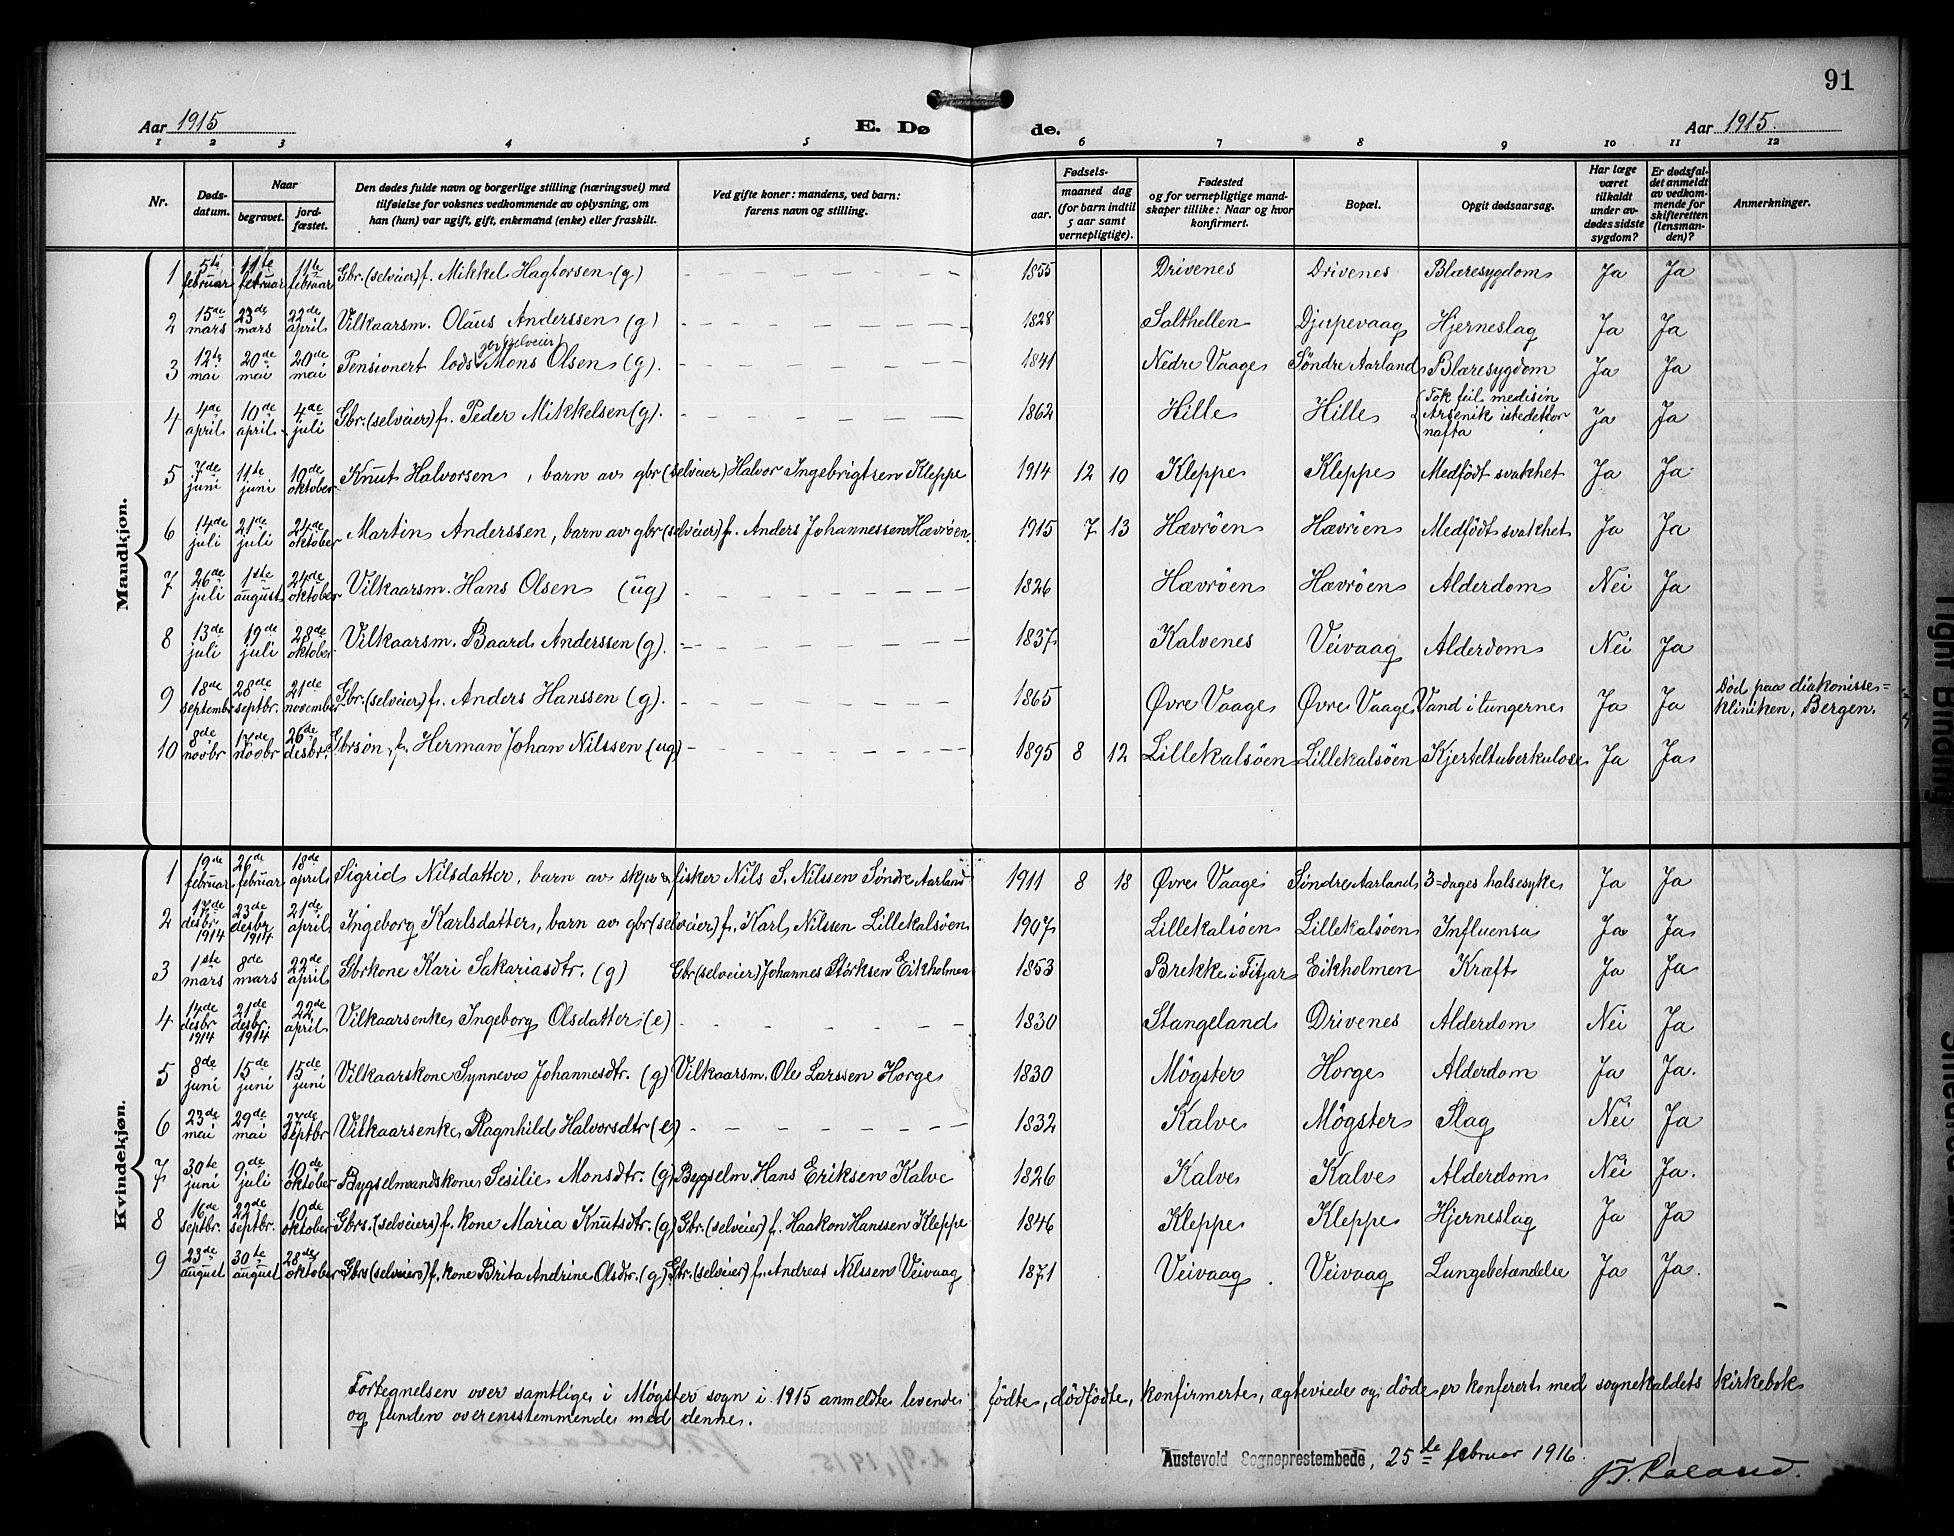 91
Aar 1915 E. Dø de. Aar 1915.
1 2 3 4 5 6 7 8 9 10 11 12
Nr. Døds-datum. Naar begravet. jord-fæstet. Den dødes fulde navn og borgerlige stilling (næringsvei) med tilføielse for voksnes vedkommende av oplysning, om han (hun) var ugift, gift, enkemand (enke) eller fraskilt. Ved gifte koner: mandens, ved barn: farens navn og stilling. Fødsels- aar. maaned dag (for barn indtil 5 aar samt vernepligtige). Fødested og for vernepligtige mandskaper tillike: Naar og hvor konfirmert. Bopæl. Opgit dødsaarsag. Har læge været tilkaldt under avdødes sidste sygdom? Er dødsfaldet anmeldt av vedkommende for skifteretten (lensmanden)? Anmerkninger.
Mandkjøn.
1 5te februar 11te februar 11te februar Gbr. (selveier) f. Mikkel Hagtorsen (g) 1855 Drivenes Drivenes Blæresygdom Ja Ja
2 15de mars 23de mars 22de april Vilkaarsm. Olaus Anderssen (g) 1828 Salthellen Djupevaag Hjerneslag Ja Ja
3 12te mai 20de mai 20de mai Pensionert lods Mons Olsen (g). 1841 Nedre Vaage Søndre Aarland Blæresygdom Ja Ja
4 4de april 10de april 4de juli Gbr. (selveier) f. Peder Mikkelsen (g). 1862 Hille Hille Tok feil medisin Arsenik istedetfor nafta Ja Ja
5 7de juni 11te juni 10de oktober Knut Halvorsen, barn av gbr (selveier) Halvor Ingebrigtsen Kleppe 1914 12 10 Kleppe Kleppe Medfödt svakhet Ja Ja
6 14de juli 21de juli 24de oktober Martin Anderssen, barn av gbr (selveier) f. Anders Johannessen Hævröen. 1915 7 13 Hævröen Hævröen Medfödt svakhet Ja Ja
7 26de juli 1ste august 24de oktober Vilkaarsm. Hans Olsen (ug) 1826 Hævröen Hævröen Alderdom Nei Ja
8 13de juli 19de juli 28de oktober Vilkaarsm. Baard Anderssen (g). 1837 Kalvenes Veivaag Alderdom Nei Ja
9 18de septembr 28de septbr. 21de november Gbr. (selveier) f. Anders Hanssen (g). 1865 Øvre Vaage Øvre Vaage Vand i lungerne Ja Ja Död paa diakonisse= kliniken, Bergen.
10 8de novbr 17de novbr 26de desbr. Gbrsøn, f. Herman Johan Nilssen (ug) 1895 8 12 Lillekalsöen Lillekalsöen Kjerteltuberkulose Ja Ja
Kvindekjøn.
1 19de februar 26de februar 18de april Sigrid Nilsdatter, barn av skpr & fisker Nils S. Nilssen Søndre Aarland 1911 8 18 Øvre Vaage Søndre Aarland 3=dages halsesyke Ja Ja
2 17de desbr. 1914 23de desbr 1914 21de april Ingeborg Karlsdatter, barn av gbr (selveier) f. Karl Nilssen Lillekalsöen 1907 Lillekalsöen Lillekalsöen Influensa Ja Ja
3 1ste mars 8de mars 22de april Gbrkone Kari Sakariasdtr. (g) Gbr (selveier) Johannes Störksen Eikholmen 1853 Brekke i Fitjar Eikholmen Kræft Ja Ja
4 14de desbr 1914 21de desbr. 1914 22de april Vilkaarsenke Ingeborg Olsdatter (e) 1830 Stangeland Drivenes Alderdom Nei Ja
5 8de juni 15de juni 15de juni Vilkaarskone Synneva Johannesdtr. (g) Vilkaarsm. Ole Larssen Horge 1830 Møgster Horge Alderdom Ja Ja.
6 23de mai 29de mai 27de septbr Vilkaarsenke Ragnhild Halvorsdtr (e) 1832 Kalve Møgster Slag Nei Ja
7 30te juni 9de juli 10de oktober Bygselmandskone Sesilie Monsdtr. (g) Bygselm. Hans Eriksen Kalve 1826 Kalve Kalve Alderdom Nei Ja.
8 16de septbr. 22de septbr. 10de oktober Gbrs. (selveiers) f. kone Maria Knutsdtr. (g) Gbr. (selveier) f. Haakon Hanssen Kleppe 1846 Kleppe Kleppe Hjerneslag Ja Ja
9 23de august 30te august 28de oktober Gbrs (selveiers) f. kone Brita Andrine Olsdtr. (g) Gbr. (selveier) f. Andreas Nilssen Veivaag 1871 Veivaag Veivaag Lungebetændelse Ja Ja.
Fortegnelsen over samtlige i Møgster sogn i 1915 anmeldte levende fødte, dödfödte, konfirmerte, ægteviede og döde er konferert med sognekaldets kirkebok
og funden overensstemmende med denne.
Austevold Sogneprestembede, 25de februar 1916.